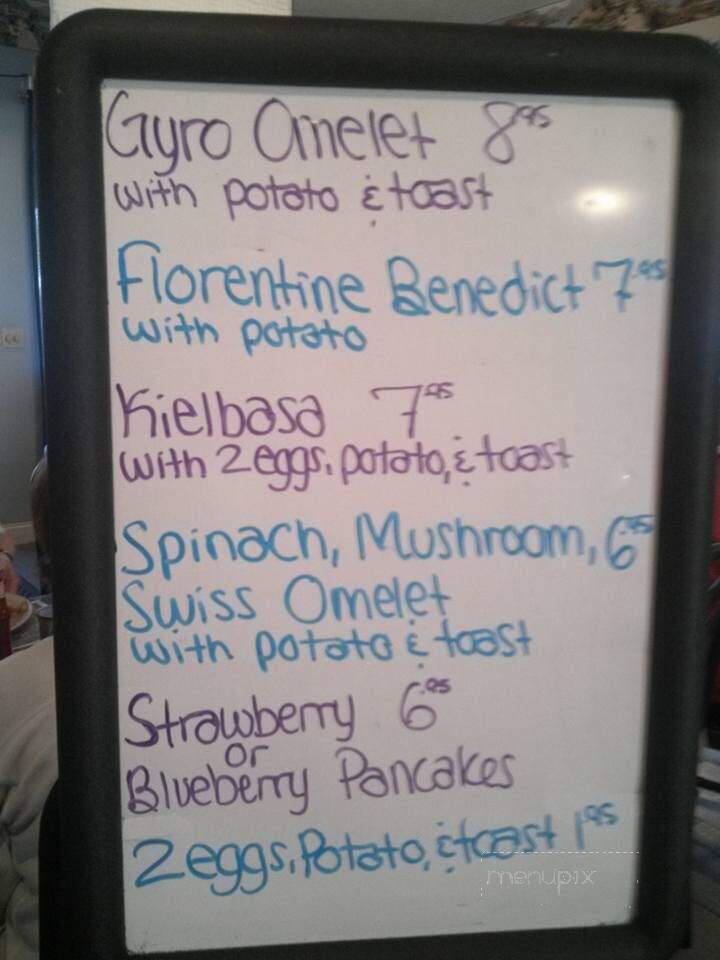 Gyro Omelet 8.95
with potato & toast
Florentine Benedict 7.95
with potato
Kielbasa 7.95
with 2 eggs, potato, & toast
Spinach, Mushroom, 6.95
Swiss Omelet
with potato & toast
Strawberry 6.95
or
Blueberry Pancakes
2 eggs, Potato, & toast 1.95
menupix